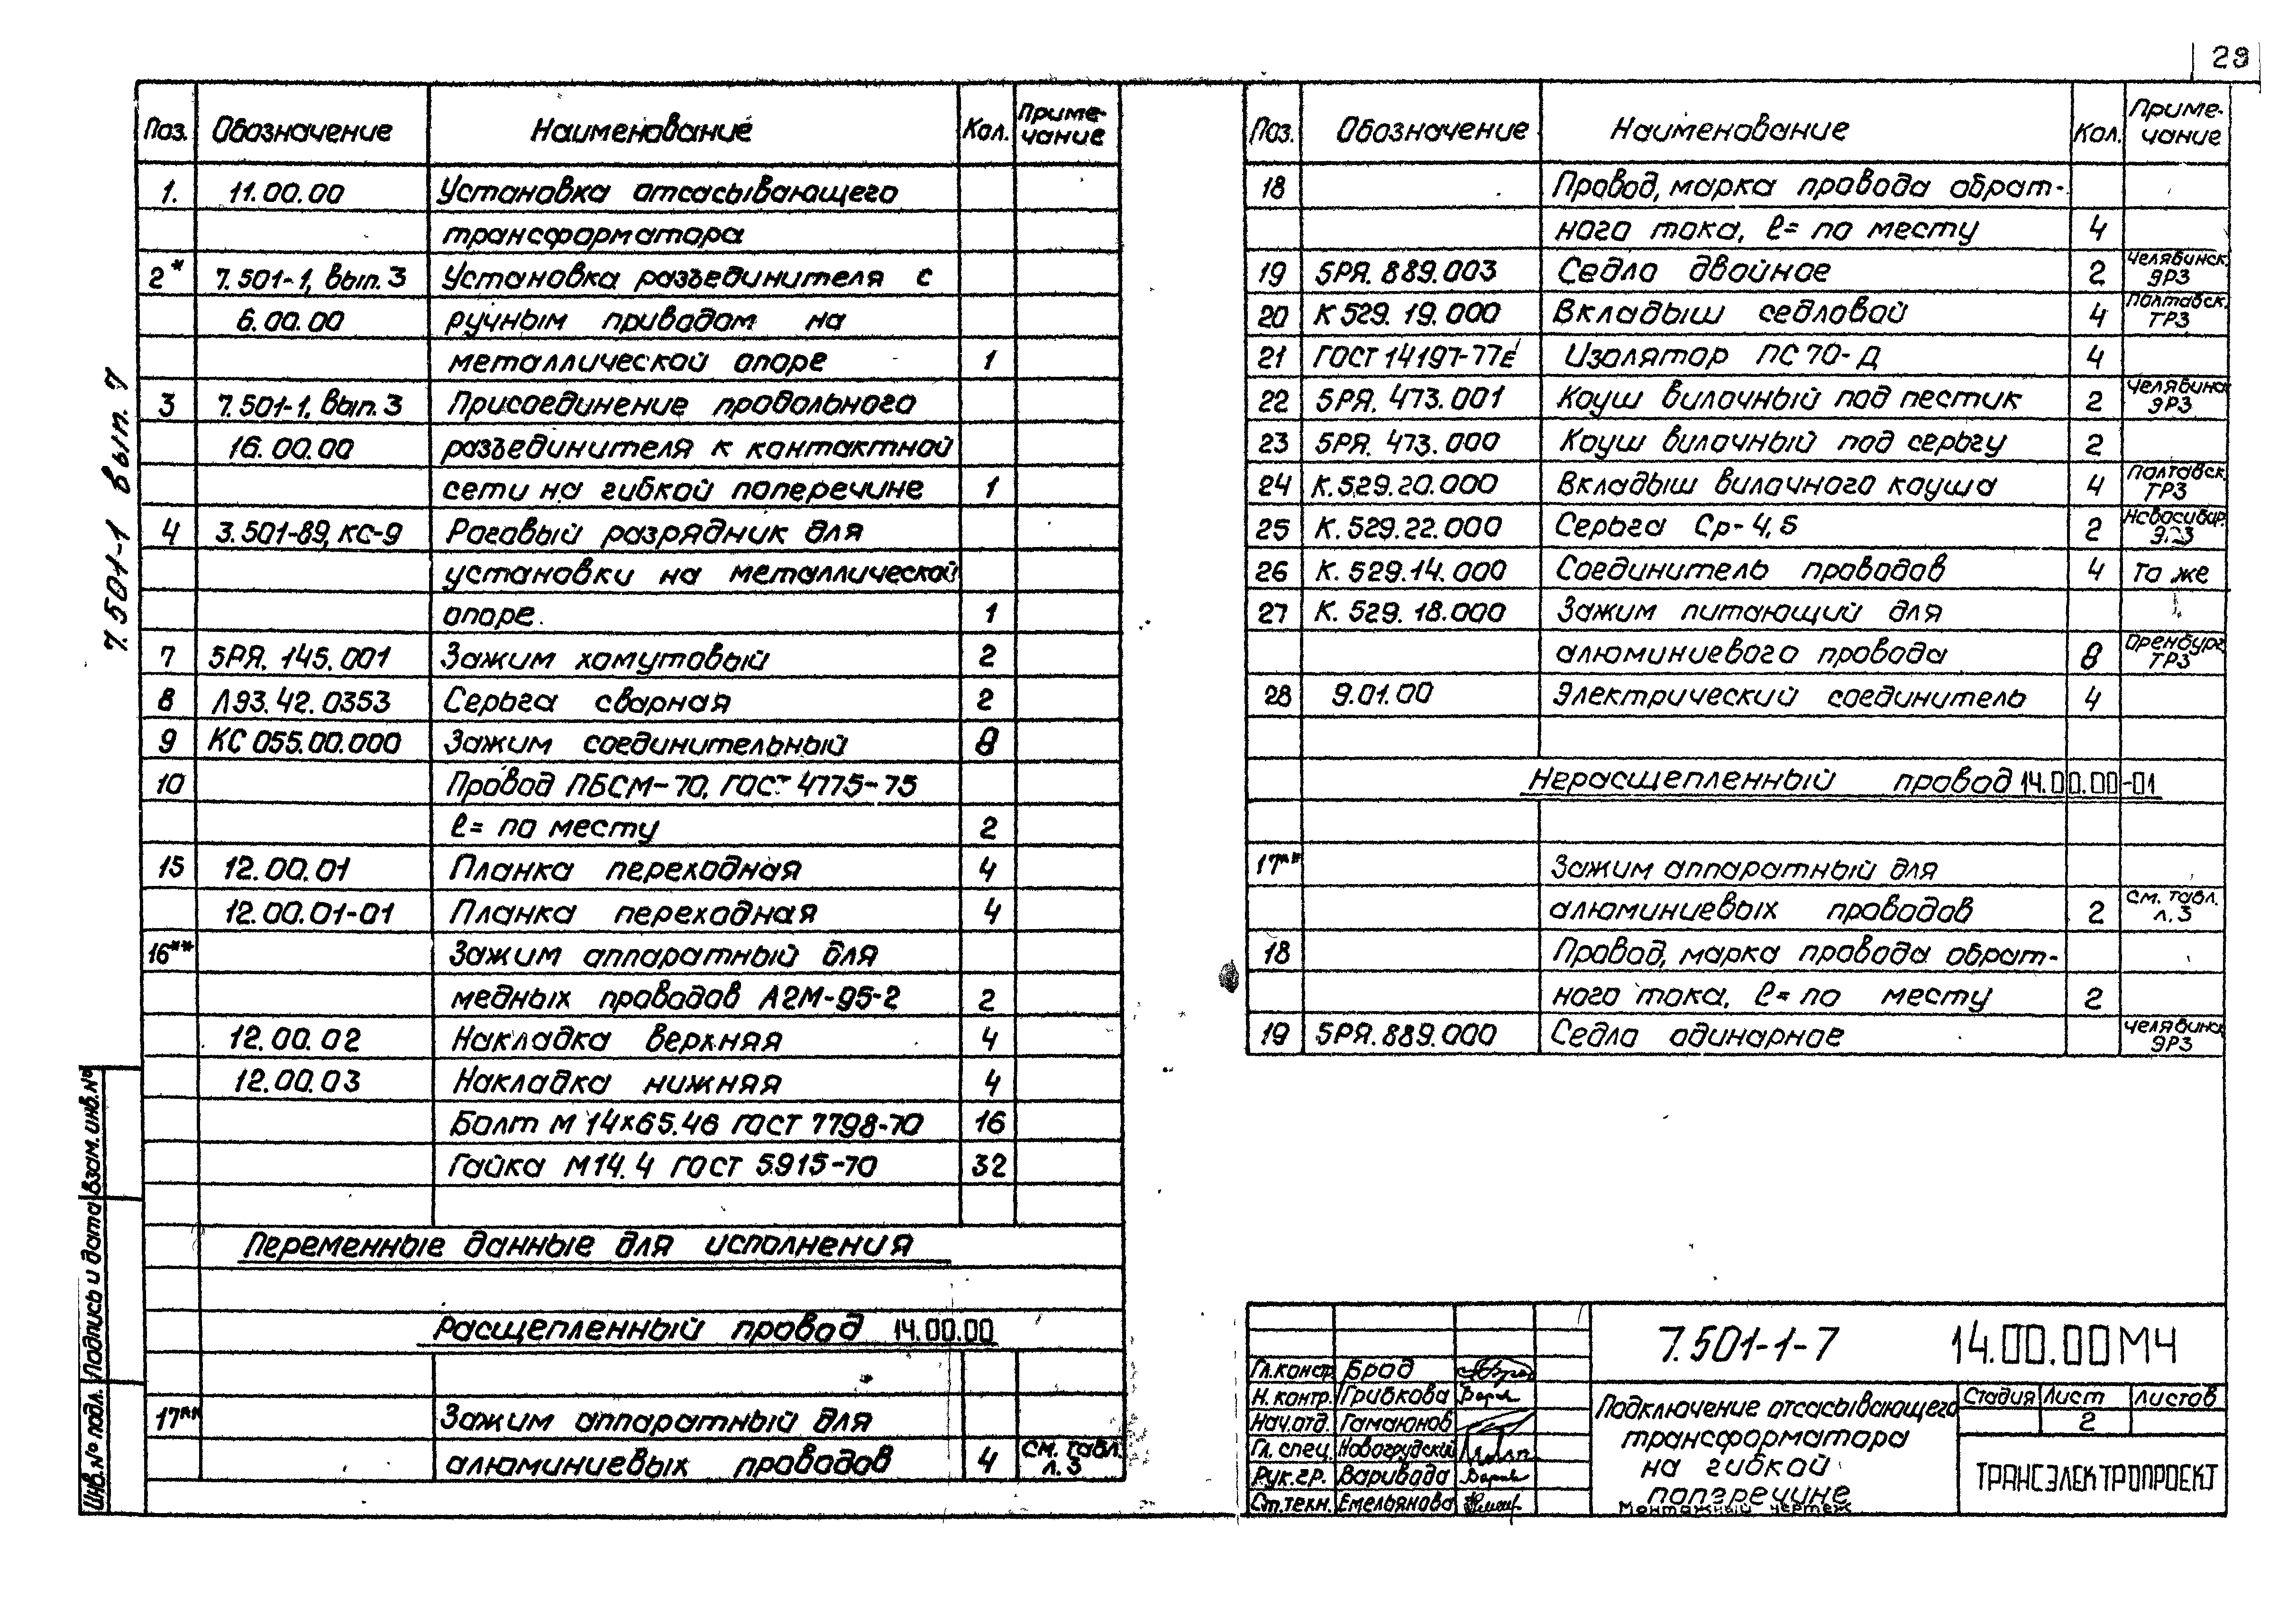 29
7.501-1 вып. 7
Поз. Обозначение Наименование Кол. Приме-
чание
1. 11.00.00 Установка отсасывающего
трансформатора
2* 7.501-1, вып. 3 Установка разъединителя с
6.00.00 ручным приводом на
металлической опоре 1
3 7.501-1, вып. 3 Присоединение продольного
16.00.00 разъединителя к контактной
сети на гибкой поперечине 1
4 3.501-89, КС-9 Роговый разрядник для
установки на металлической
опоре. 1
7 5РЯ. 145.001 Зажим хомутовый 2
8 Л93.42.0353 Серьга сварная 2
9 КС 055.00.000 Зажим соединительный 8
10 Провод ПБСМ-70, ГОСТ 4775-75
ℓ= по месту 2
15 12.00.01 Планка переходная 4
12.00.01-01 Планка переходная 4
16** Зажим аппаратный для
медных проводов А2М-95-2 2
12.00.02 Накладка верхняя 4
12.00.03 Накладка нижняя 4
Болт М 14×65.46 ГОСТ 7798-70 16
Гайка М14.4 ГОСТ 5915-70 32
Переменные данные для исполнения
Расщепленный провод 14.00.00
17** Зажим аппаратный для
алюминиевых проводов 4 См. табл.
л. 3
Инв. № подл. Подпись и дата Взам. инв. №
Поз. Обозначение Наименование Кол. Приме-
чание
18 Провод, марка провода обрат-
ного тока, ℓ= по месту 4
19 5РЯ. 889.003 Седло двойное 2 Челябинск.
ЭРЗ
20 К 529. 19. 000 Вкладыш седловой 4 Полтавск.
ТРЗ
21 ГОСТ 14197-77Е Изолятор ПС 70-Д 4
22 5РЯ. 473.001 Коуш вилочный под пестик 2 Челябинск
ЭРЗ
23 5РЯ. 473.000 Коуш вилочный под серьгу 2
24 К.529.20.000 Вкладыш вилочного коуша 4 Полтавск.
ТРЗ
25 К.529.22.000 Серьга Ср-4,5 2 Новосибир.
ЭРЗ
26 К. 529.14.000 Соединитель проводов 4 То же
27 К. 529. 18.000 Зажим питающий для
алюминиевого провода 8 Оренбург.
ТРЗ
28 9.01.00 Электрический соединитель 4
Нерасщепленный провод 14.00.00-01
17** Зажим аппаратный для
алюминиевых проводов 2 См. табл.
л. 3
18 Провод, марка провода обрат-
ного тока, ℓ= по месту 2
19 5РЯ.889.000 Седло одинарное Челябинск
ЭРЗ
7.501-1-7 14.00.00 МЧ
Гл.констр. Брод
Н. контр. Грибкова
Нач.отд. Гамаюнов
Гл. спец. Новогрудский
Рук.гр. Варивода
Ст.техн. Емельянова
Подключение отсасывающего
трансформатора
на гибкой
поперечине
Монтажный чертеж
Стадия Лист Листов
2
ТРАНСЭЛЕКТРОПРОЕКТ